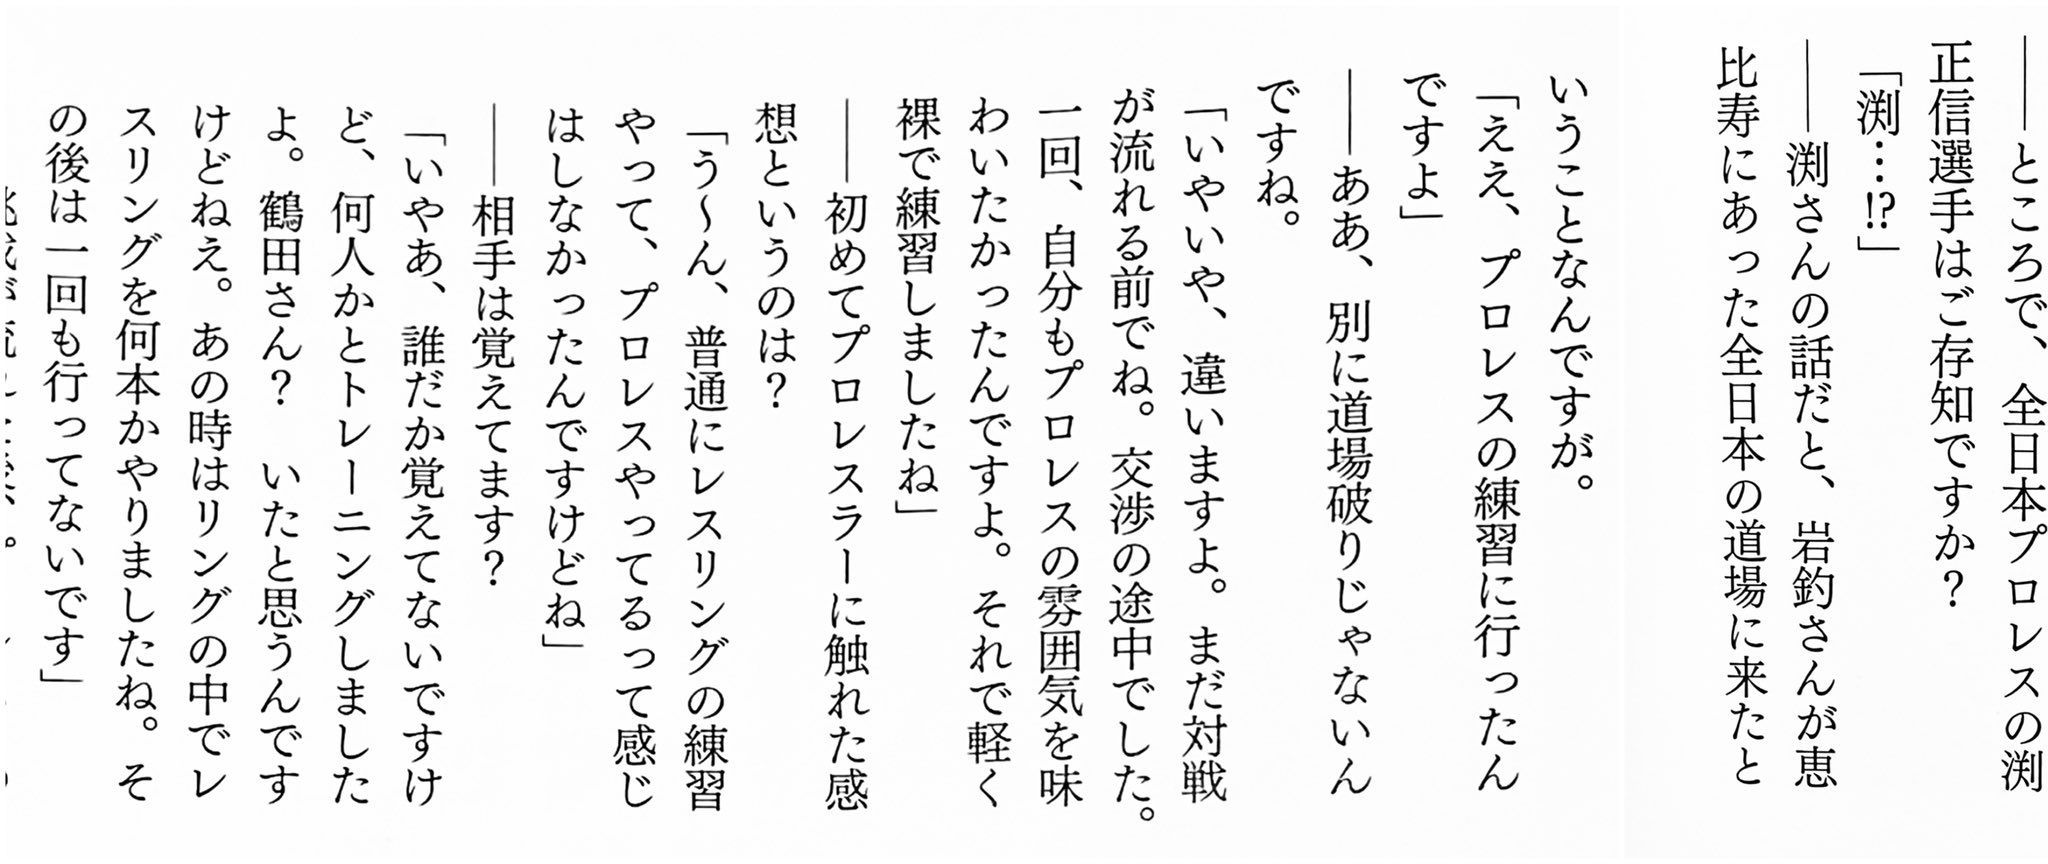 ――ところで、全日本プロレスの渕
正信選手はご存知ですか？
「渕…!?」
――渕さんの話だと、岩釣さんが恵
比寿にあった全日本の道場に来たと
いうことなんですが。
「ええ、プロレスの練習に行ったん
ですよ」
――ああ、別に道場破りじゃないん
ですね。
「いやいや、違いますよ。まだ対戦
が流れる前でね。交渉の途中でした。
一回、自分もプロレスの雰囲気を味
わいたかったんですよ。それで軽く
裸で練習しましたね」
――初めてプロレスラーに触れた感
想というのは？
「う〜ん、普通にレスリングの練習
やって、プロレスやってるって感じ
はしなかったんですけどね」
――相手は覚えてます？
「いやあ、誰だか覚えてないですけ
ど、何人かとトレーニングしました
よ。鶴田さん？　いたと思うんです
けどねえ。あの時はリングの中でレ
スリングを何本かやりましたね。そ
の後は一回も行ってないです」